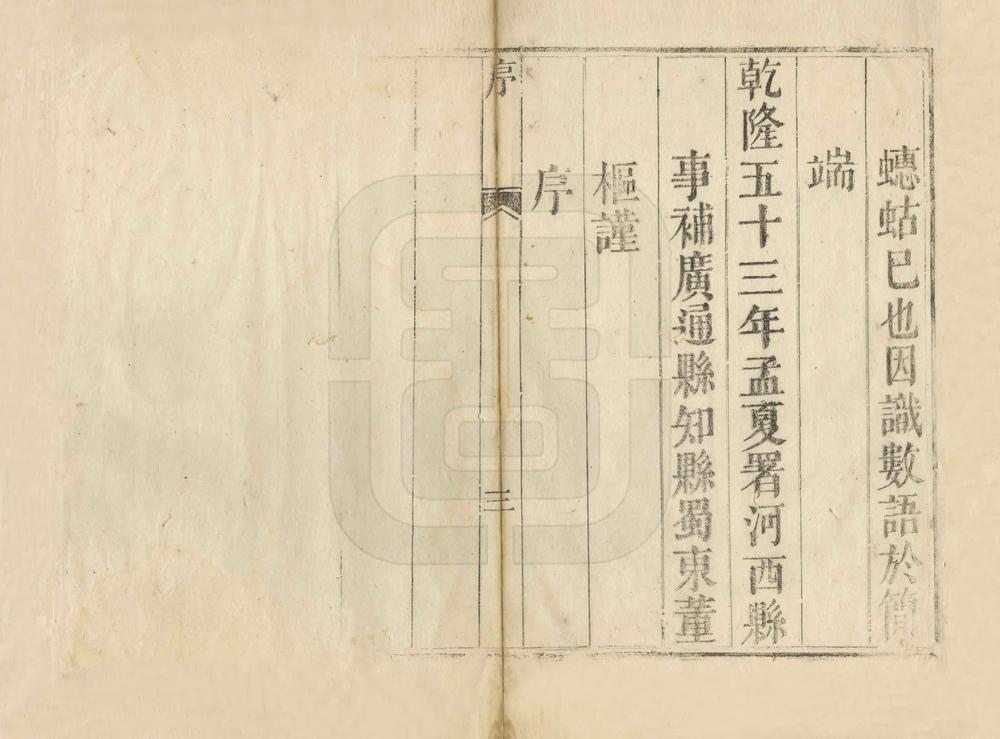 蟪蛄已也因識數語於簡
端
乾隆五十三年孟夏署河西縣
事補廣通縣知縣蜀東董
樞謹
序
序
三